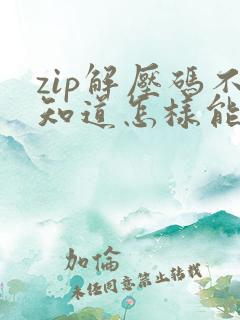 zip解壓碼不
知道怎樣能
加倫
未任同意禁止转载